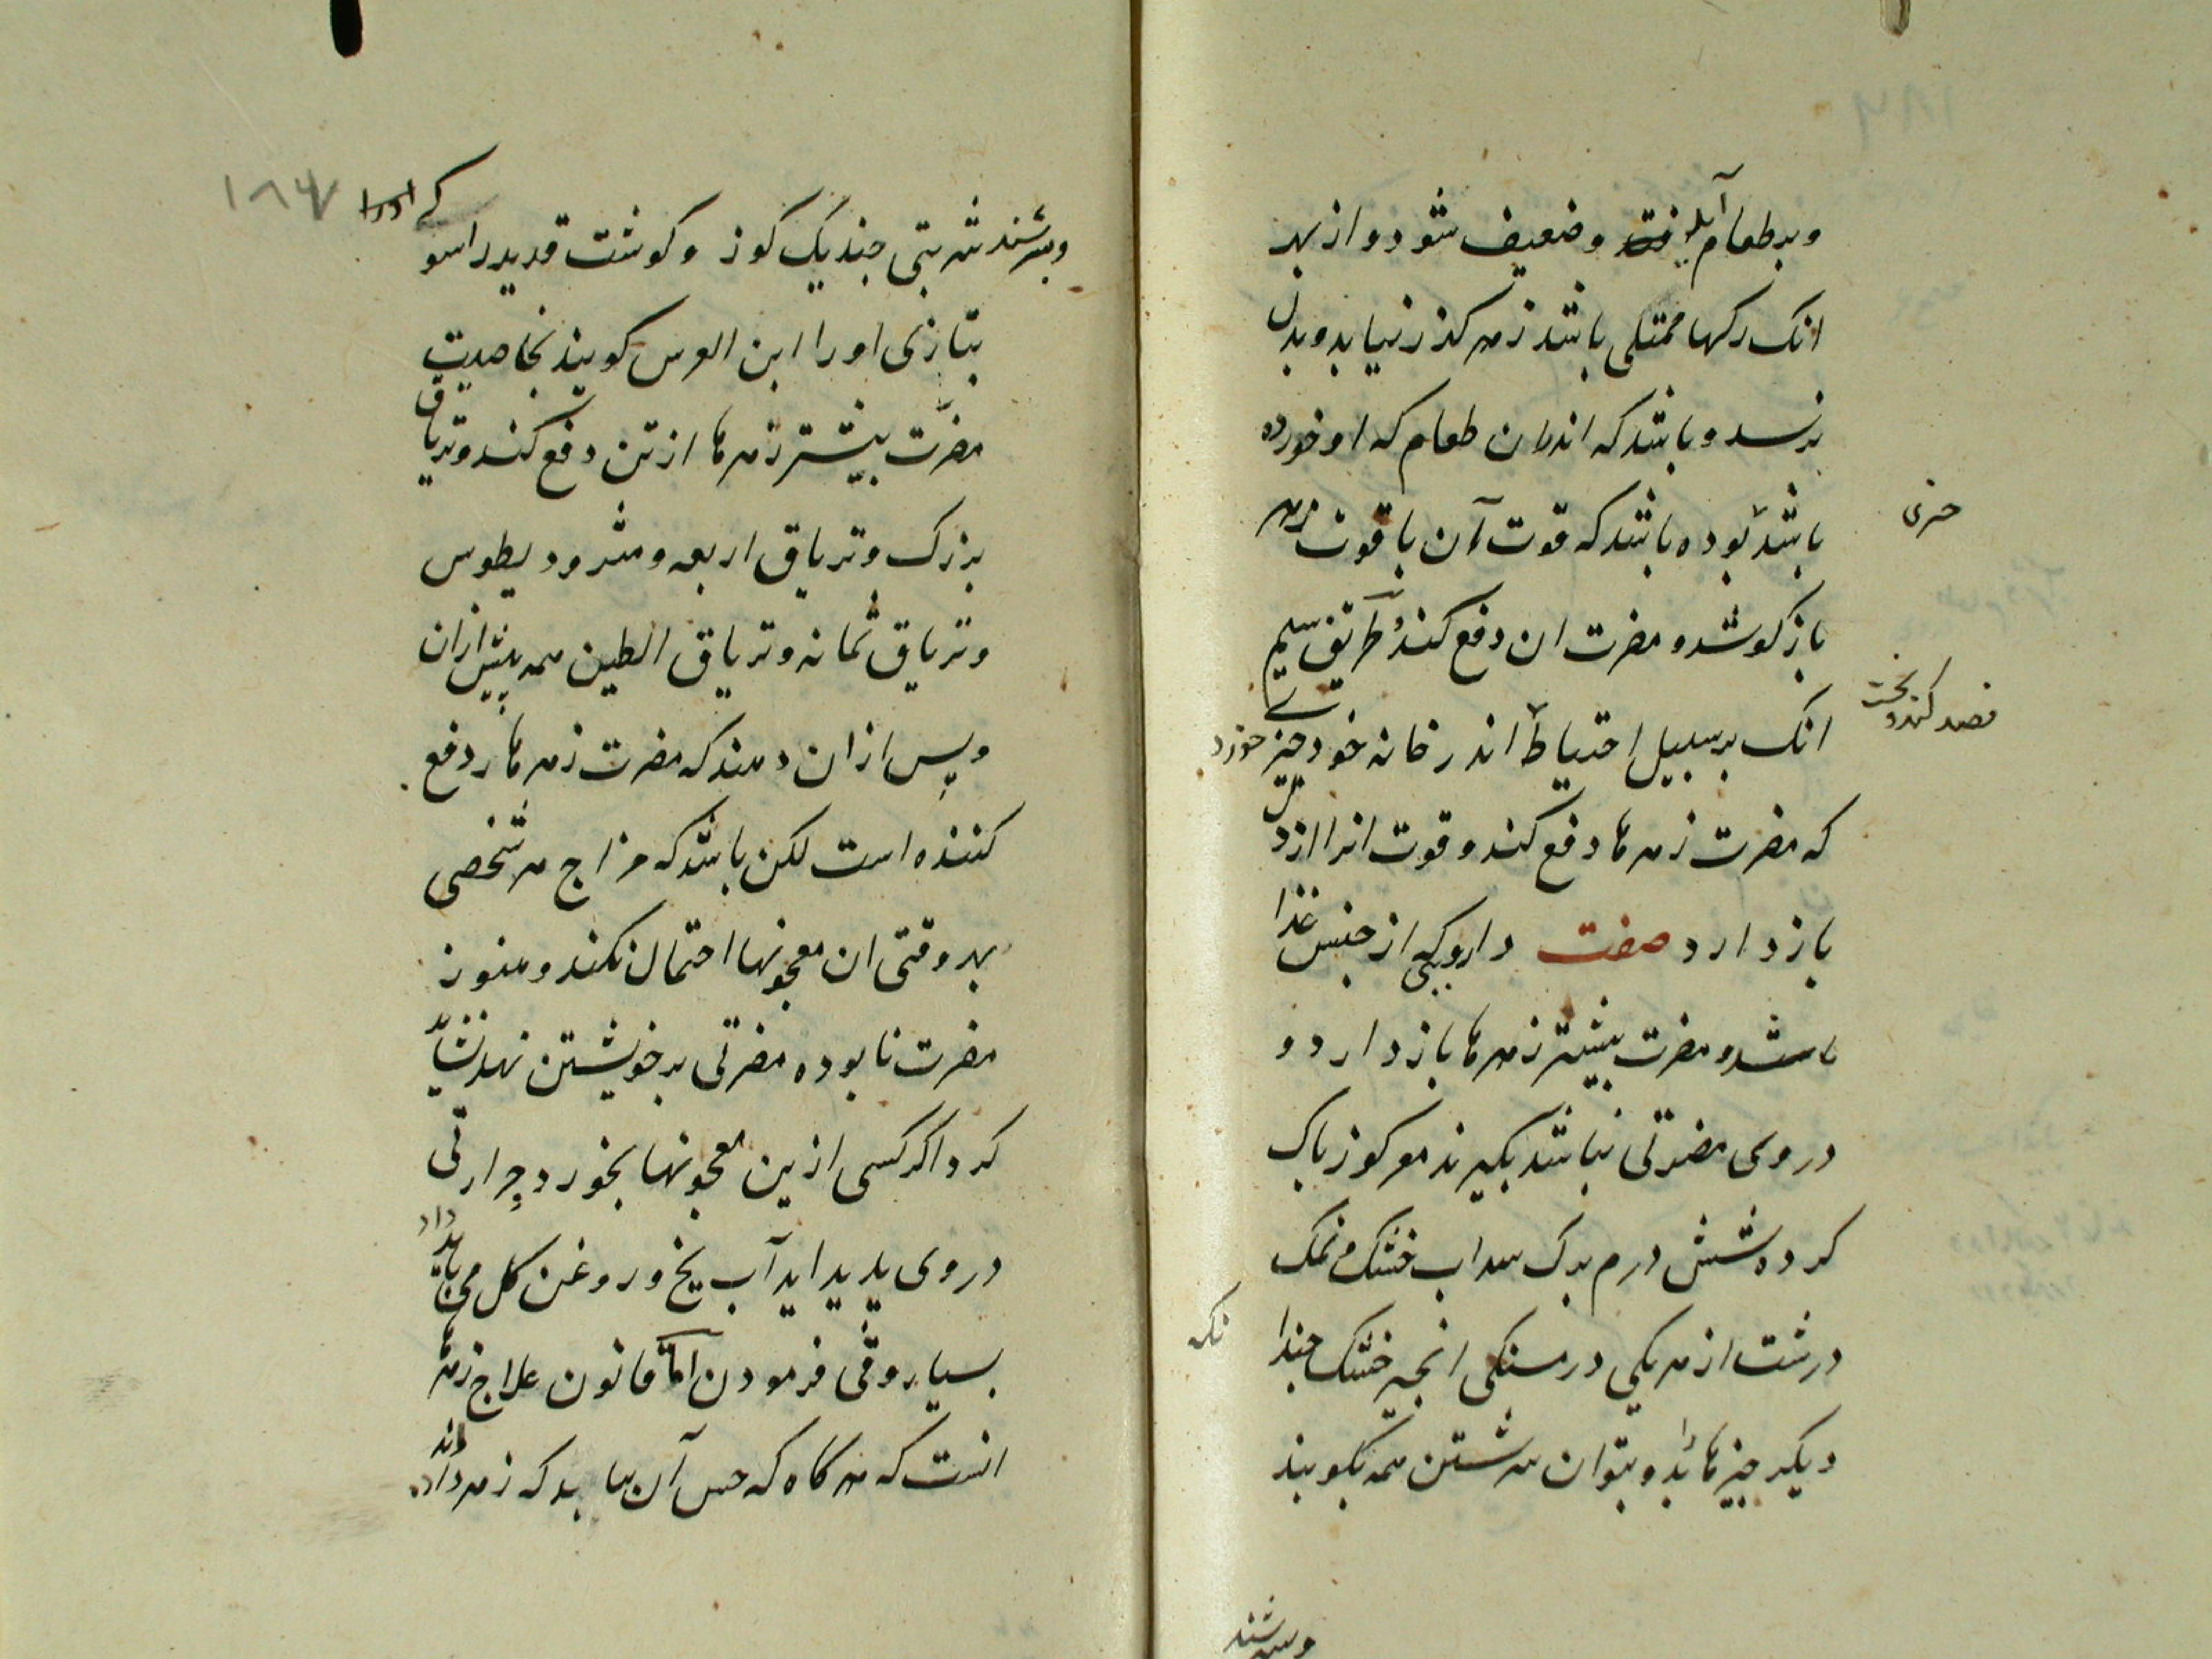 وبر طعام آید وضعیف شود واز بهر
انک رکها ممتلی باشد زهر کذر نیابد وبدل
نرسد وباشد که اندران طعام که او خورده
باشد بوده باشد که قوت آن با قوت زهر
چیزی
باز کوشد ومضرت ان دفع کند وطریق سیم
انک بر سبیل احتیاط اندر خانه خود چیزی خورد
قصد کند
که مضرت زهرها دفع کند وقوت انرا از دل
باز دارد صفت دارویی که از جنس غذا
باشد ومضرت بیشتر زهرها باز دارد و
دروی مضرتی نباشد بکیرند مغز کوز پاک
کرده شش درم برک سداب خشک ونمک
درشت از هر یکی درمسنکی انجیر خشک چندا
نکه
دیکر چیزها بدو بتوان سرشتن همه بکوبند
وسرشند
۱۸۷
وبسرشند شربتی چند یک کوز وکوشت قدید راسو
که اورا
بتازی اورا ابن العرس کویند بخاصیت
مضرّت بیشتر زهرها از تن دفع کند وتریاق
بزرک وتریاق اربعه ومثرودیطوس
وتریاق ثمانه وتریاق الطین همه پیش ازان
وپس ازان دهند که مضرت زهرها را دفع
کننده است لکن باشد که مزاج هر شخصی
بهر وقتی ان معجونها احتمال نکند وهنوز
مضرت نابوده مضرتی بر خویشتن نهد نشاید
کرد اکر کسی ازین معجونها بخورد وحرارتی
دروی پدید اید آب یخ وروغن کل می باید داد
بسیار وقی فرمودن امّا قانون علاج زهرها
انست که هر کاه که حس آن بیابد که زهر داده اند